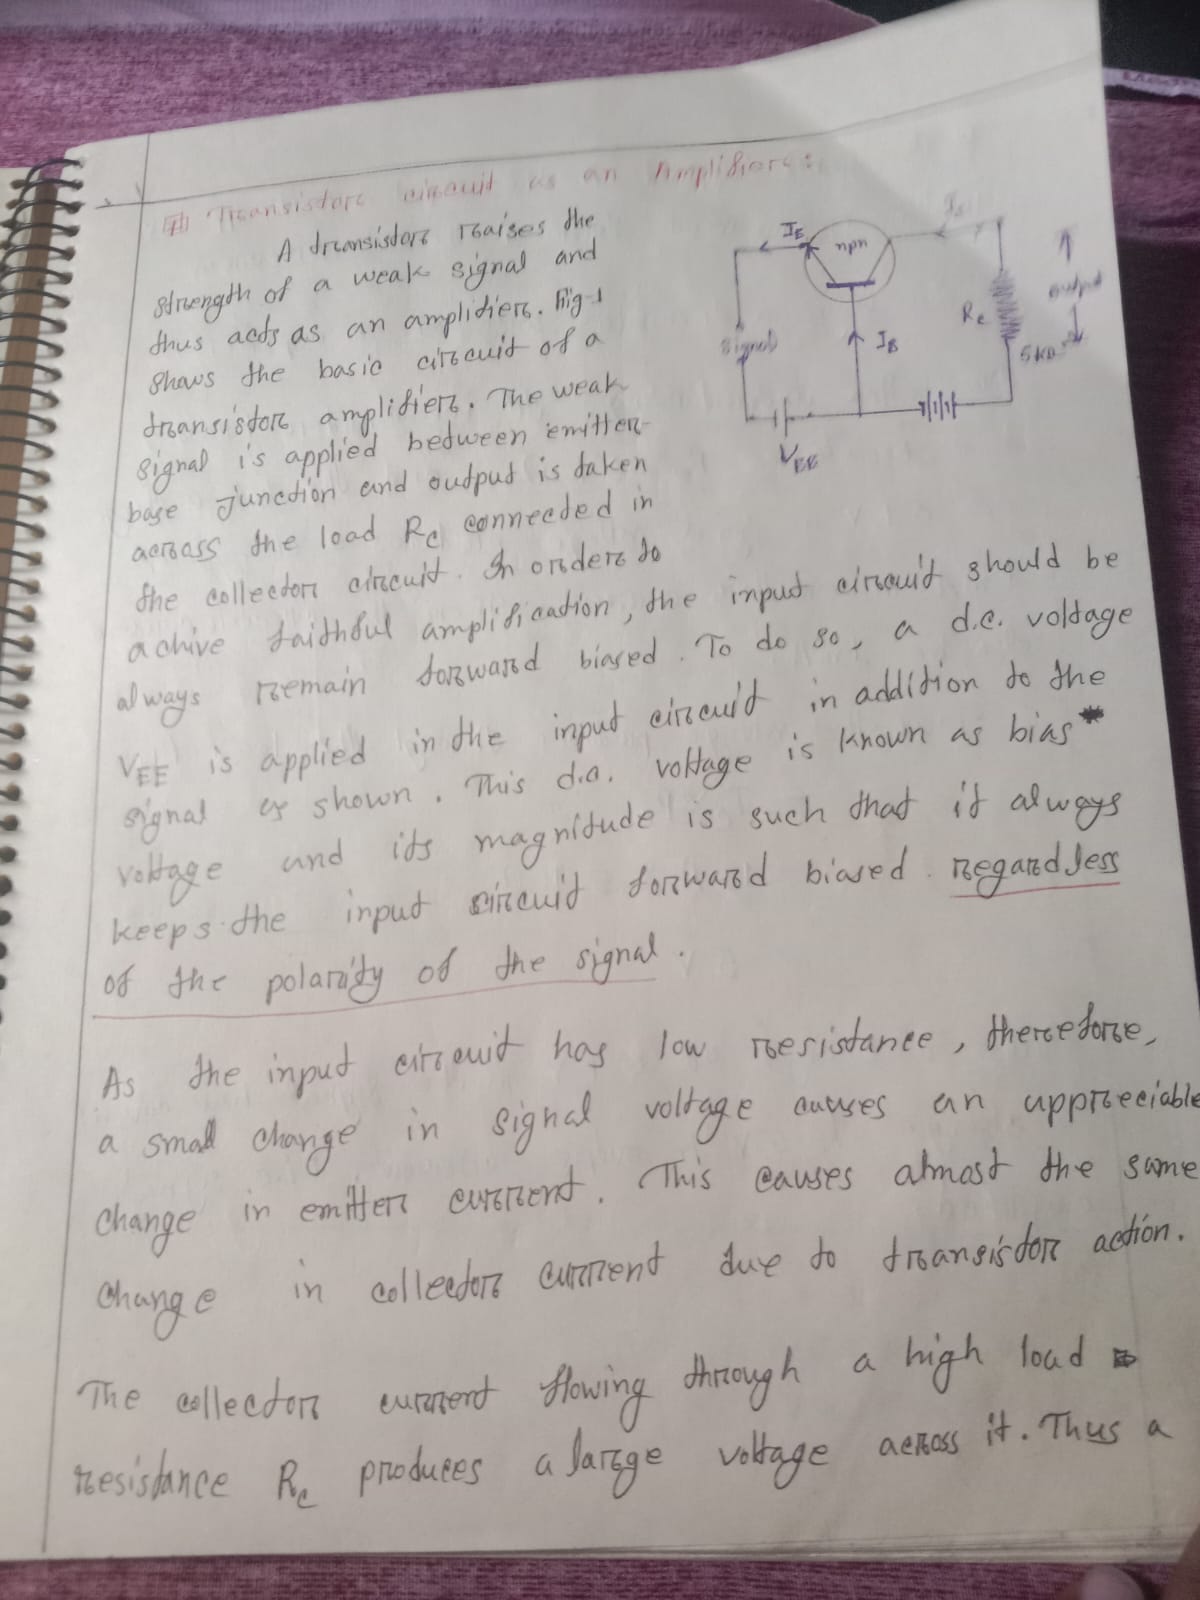 Transistors circuit as an Amplifiers:
A transistors raises the
strength of a weak signal and
thus acts as an amplifiers. Fig-1
shows the basic circuit of a
transistors amplifiers. The weak
signal is applied between emitter-
base junction and output is taken
across the load Rc connected in
the collector circuit. In orders to
achive faithful amplification, the input circuit should be
always remain forward biased. To do so, a d.c. voltage
VEE is applied in the input circuit in addition to the
signal as shown. This d.c. voltage is known as bias
voltage and its magnitude is such that it always
keeps the input circuit forward biased. regardless
of the polarity of the signal.
As the input circuit has low resistance, therefore,
a small change in signal voltage causes an appreciable
change in emitter current. This causes almost the same
change in collector current due to transistor action.
The collector current flowing through a high load
resistance Rc produces a large voltage across it. Thus a
IE
npn
IB
signal
VEE
Rc
5kΩ
output